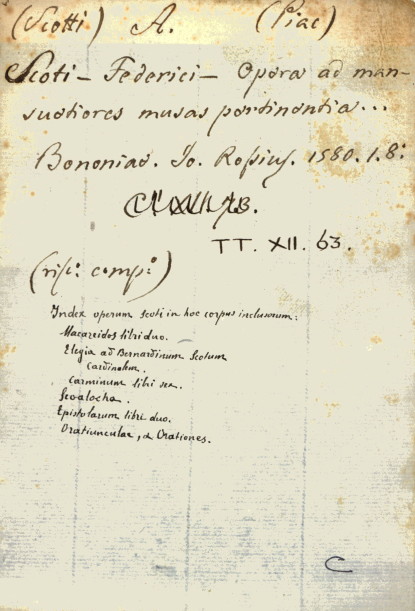 (Scotti) A. (Piac)
Scoti - Federici - Opera ad man-
suetiores musas pertinentia...
Bononiae. Jo. Rossius. 1580. 1. 8:
TT. XII. 63.
(ris: comp:)
Index operum Scoti in hoc corpus inclusorum:
Macareidos libri duo.
Elegia ad Bernardinum Scotum
Cardinalem.
Carminum libri sex.
Epistolarum libri duo.
Oratiunculae, & Orationes.
C